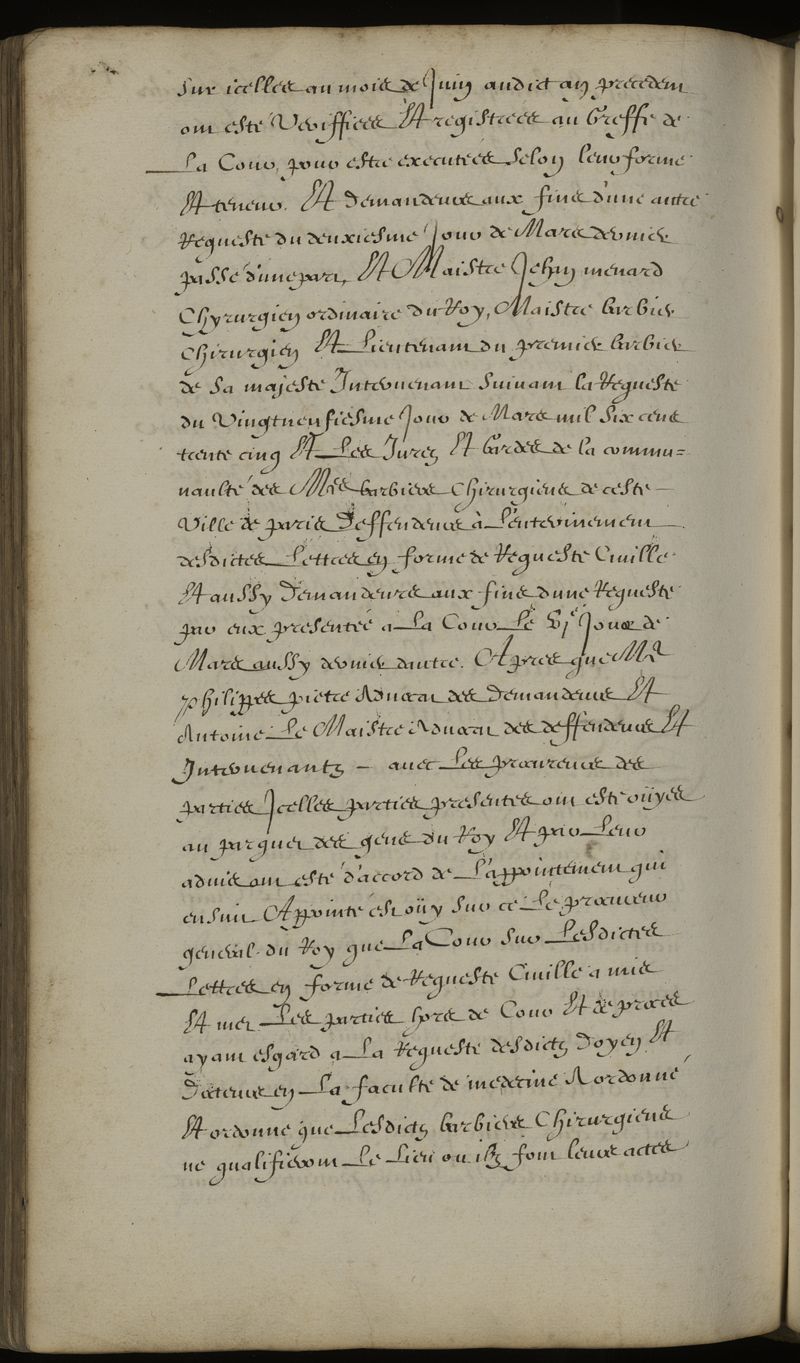 sur icelles au mois de Juin audict an precedent
ont esté veriffiees Et registrees au Greffe de
La Cour, pour estre executées selon leur forme
Et teneur. Et Demandeurs aux fins d'une autre
Requeste du deuxiesme Jour de Mars dernier
passé d'une part, Et Maistre Jehan menard
Chyrurgien ordinaire du Roy, Maistre barbier
Chirurgien Et Lieutenant du premier barbier
de sa majesté Intervenant suivant la Requeste
du Vingtneufiesme Jour de Mars mil six cens
trente cinq Et Les Jurez Et Gardes de la commu=
naulté des Mres barbiers Chirurgiens de ceste
Ville de paris Deffendeurs à L'enterinement
desdictes Lettres en forme de Requeste Civille
Et aussy Demandeurs aux fins d'une Requeste
par eux presentée a La Cour Le VJe Jour de
Mars aussy dernier d'autre. Apres que Me
philippes pietre Advocat des Demandeurs Et
Antoine Le Maistre Advocat des deffendeurs Et
Intervenantz – avec Les procureurs des
parties Jcelles parties presentes ont esté oüyes
au parquet des gens du Roy Et par Leur
advis ont esté d'accord de L'appointement qui
ensuit Appointé est oüy sur ce Le procureur
general du Roy que La Cour sur Lesdictes
Lettres en forme de Requeste Civille a mis
Et met Les parties hors de Cour Et de proces
ayant esgard a La Requeste desdictz Doyen Et
Docteurs en La faculté de medecine A ordonné
Et ordonne que Lesdictz barbiers Chirurgiens
ne qualifieront Le Lieu ou ilz font leurs actes